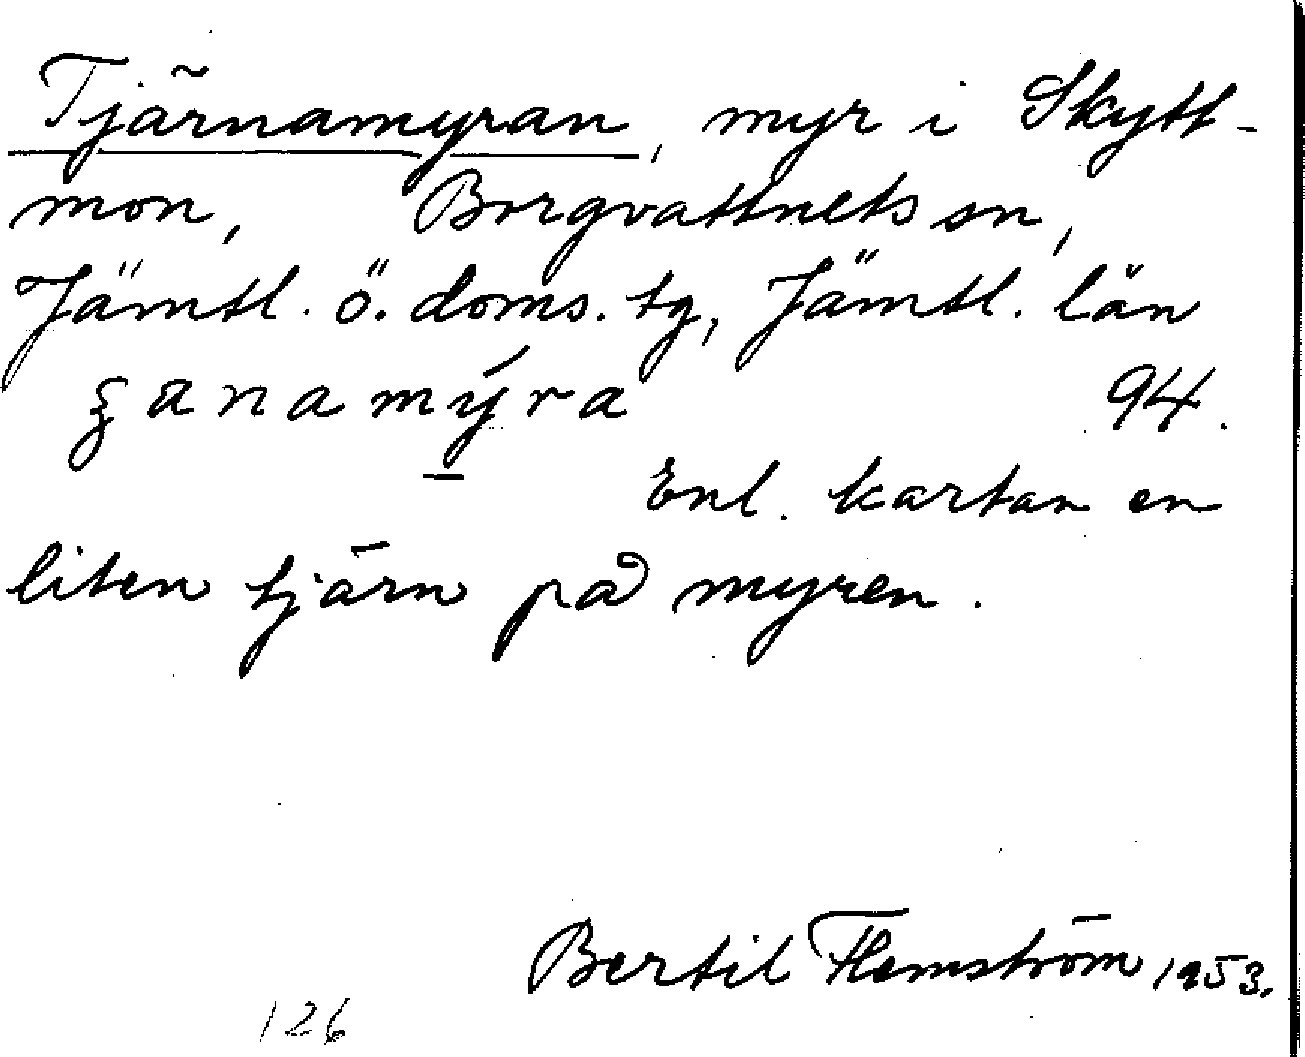 Tjärnamyran, myr i Skytt-
mon, Borgvattnets sn,
Jämtl. ö. doms. tg, Jämtl. län
ʒanamýra 94.
Enl. kartan en
liten tjärn på myren.
Bertil Flemström 1953.
126